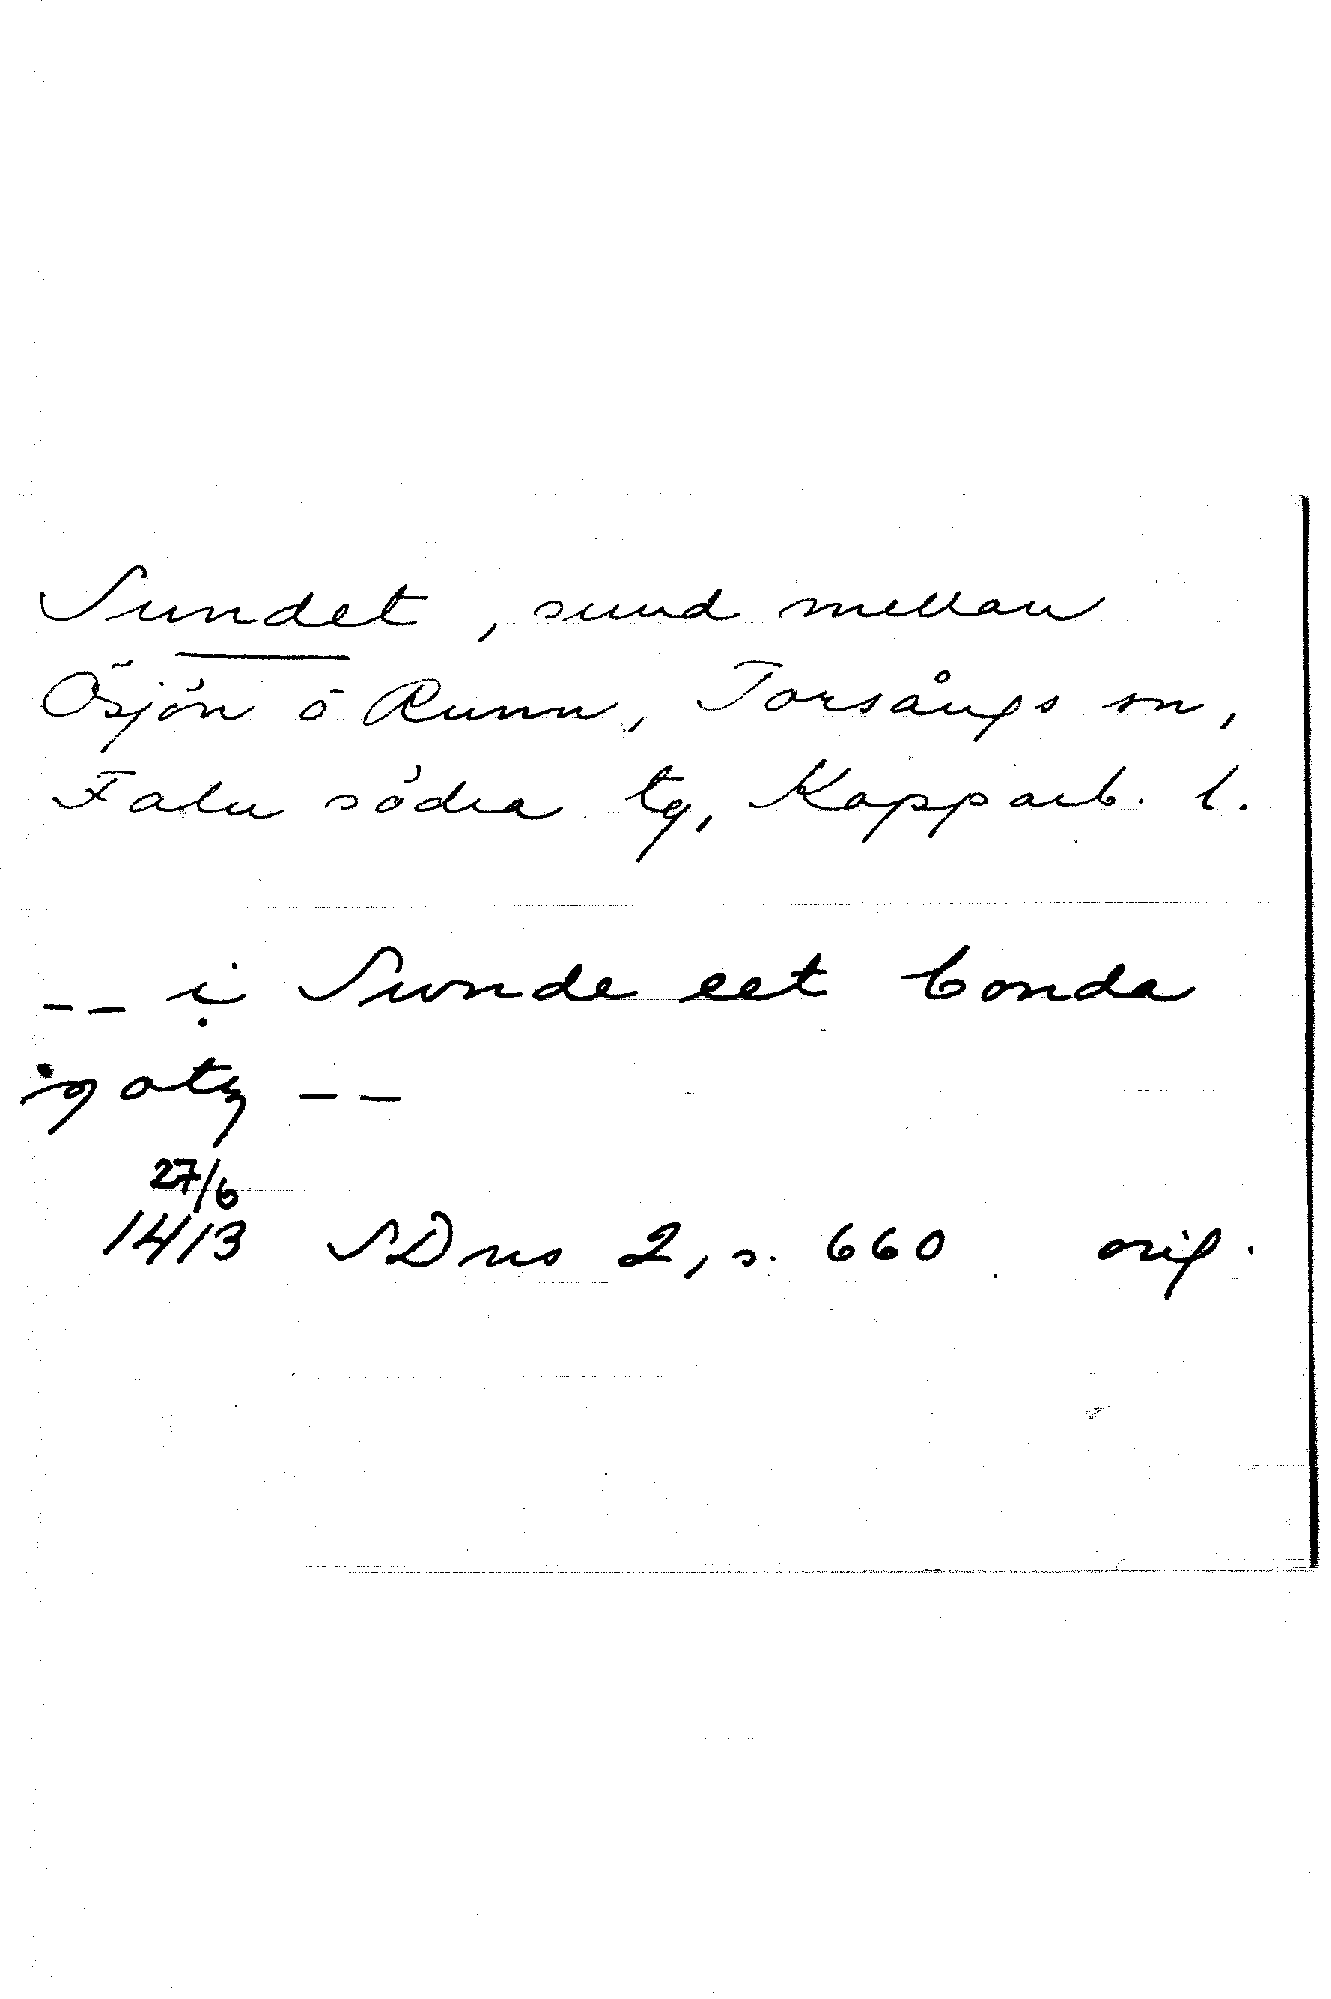 Sundet, sund mellan
Ösjön o Runn, Torsångs sn,
Falu södra tg, Kopparb. l.
-- i Swnde eet bonda
gotz --
27/6
1413 SDns 2, s. 660 orig.